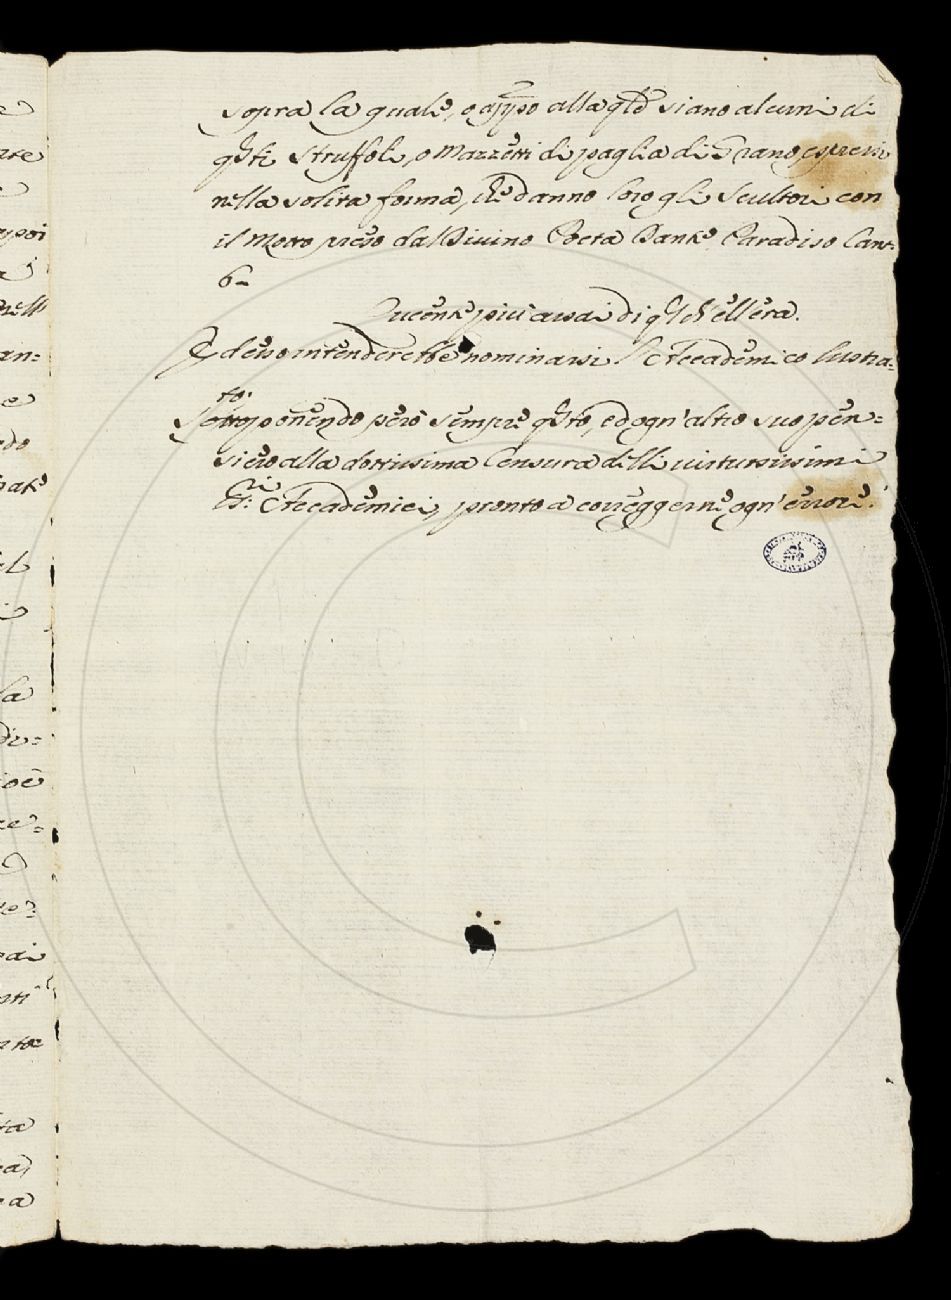 sopra la quale, o app:o alla qle siano alcuni di
qsti Struffoli, o Mazzetti di paglia di Grano espressi
nella solita forma, che danno loro gli Scultori con
il Motto preso dal Divino Poeta Dante Paradiso Cant:
6.
Lucente più assai di ql ch'ell'era.
E desso intenderebbe nominarsi l'Accademico Lustra=
to.
Sottoponendo però sempre qsto, ed ogn'altro suo pen=
siero alla dottissima Censura delli virtuosissimi
SS:ri Accademici, pronto a correggerne ogn'errore.